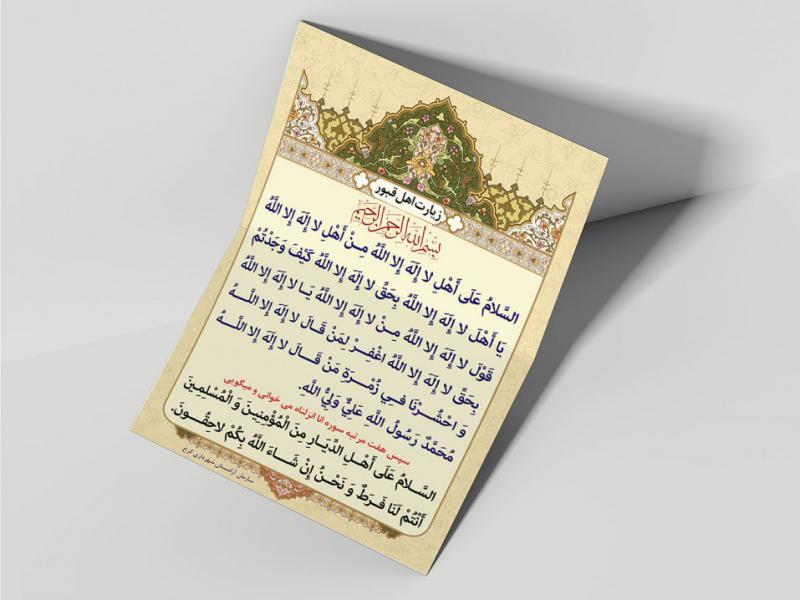 زیارت اهل قبور
بسم الله الرحمن الرحیم
السَّلامُ عَلَى أَهْلِ لا إِلَهَ إِلا اللَّهُ مِـنْ أَهْلِ لا إِلَهَ إِلا اللَّهُ
يَا أَهْلَ لا إِلَهَ إِلا اللَّهُ بِحَقِّ لا إِلَهَ إِلا اللَّهُ كَيْفَ وَجَدْتُمْ
قَوْلَ لا إِلَهَ إِلا اللَّهُ مِـنْ لا إِلَهَ إِلا اللَّهُ يَـا لا إِلَهَ إِلا اللَّهُ
بِحَقِّ لا إِلَهَ إِلا اللَّهُ اغْفِـرْ لِمَنْ قَـالَ لا إِلَهَ إِلا اللَّـهُ
وَ احْشُـرْنَا فـِي زُمْـرَةِ مَنْ قَـالَ لا إِلَهَ إِلا اللَّـهُ
مُحَمَّدٌ رَسُولُ اللَّهِ عَلِيٌّ وَلِيُّ اللَّهِ.
سپس هفت مرتبه سوره انا انزلناه می خوانی و میگویی
السَّـلامُ عَلَى أَهْـلِ الدِّيَـارِ مِنَ الْمُؤْمِنِينَ وَ الْمُسْلِمِينَ
أَنْتُمْ لَنَا فَـرَطٌ وَ نَحْـنُ إِنْ شَـاءَ اللَّهُ بِكُمْ لاحِقُـونَ.
سازمان آرامستان شهرداری کرج